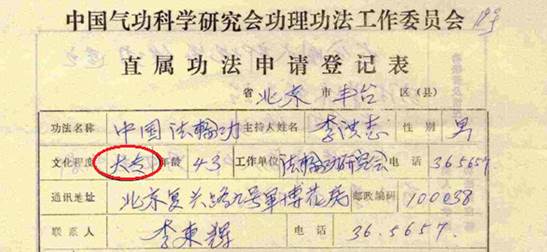 中国气功科学研究会功理功法工作委员会
直属功法申请登记表
省 北京 市 丰台 区(县)
功法名称 中国法輪功 主持人姓名 李洪志 性别 男
文化程度 大专 年龄 43 工作单位 法輪功研究会 电话 365657
通讯地址 北京复兴路九号軍博花房 邮政编码 100038
联系人 李東輝 电话 36.5657.